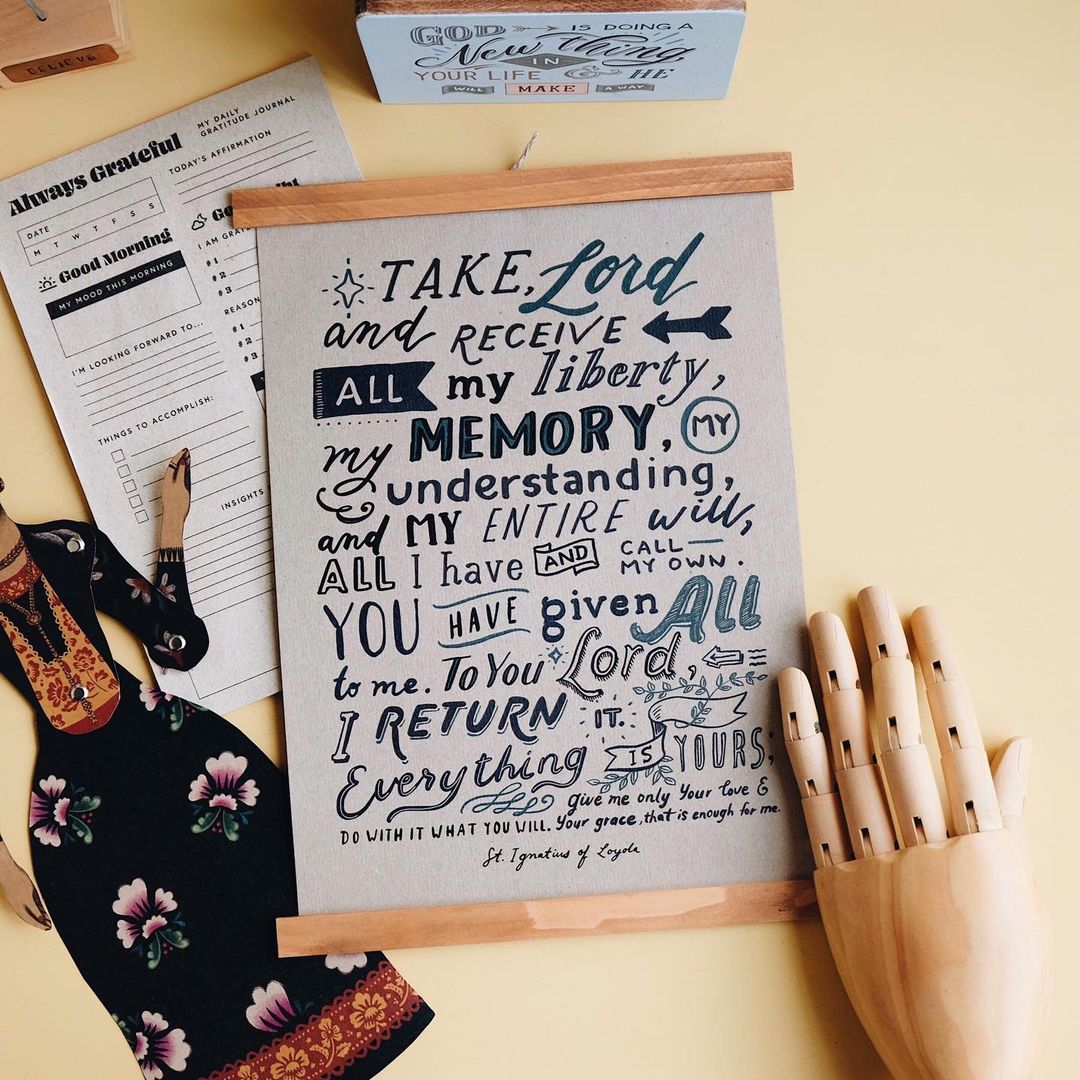 BELIEVE
GOD IS DOING A
New Thing
IN
YOUR LIFE & HE
WILL MAKE A WAY
Always Grateful
MY DAILY
GRATITUDE JOURNAL
DATE
M T W T F S S
TODAY'S AFFIRMATION
Good Morning
MY MOOD THIS MORNING
I'M LOOKING FORWARD TO...
THINGS TO ACCOMPLISH:
#1
#2
#3
#1
#2
#3
INSIGHTS
TAKE, Lord
and RECEIVE
ALL my liberty,
my MEMORY, MY
understanding,
and MY ENTIRE will,
ALL I have AND CALL
MY OWN.
YOU HAVE given All
to me. To You Lord,
I RETURN IT.
Everything IS YOURS;
DO WITH IT WHAT YOU WILL. give me only Your love &
Your grace, that is enough for me.
St. Ignatius of Loyola